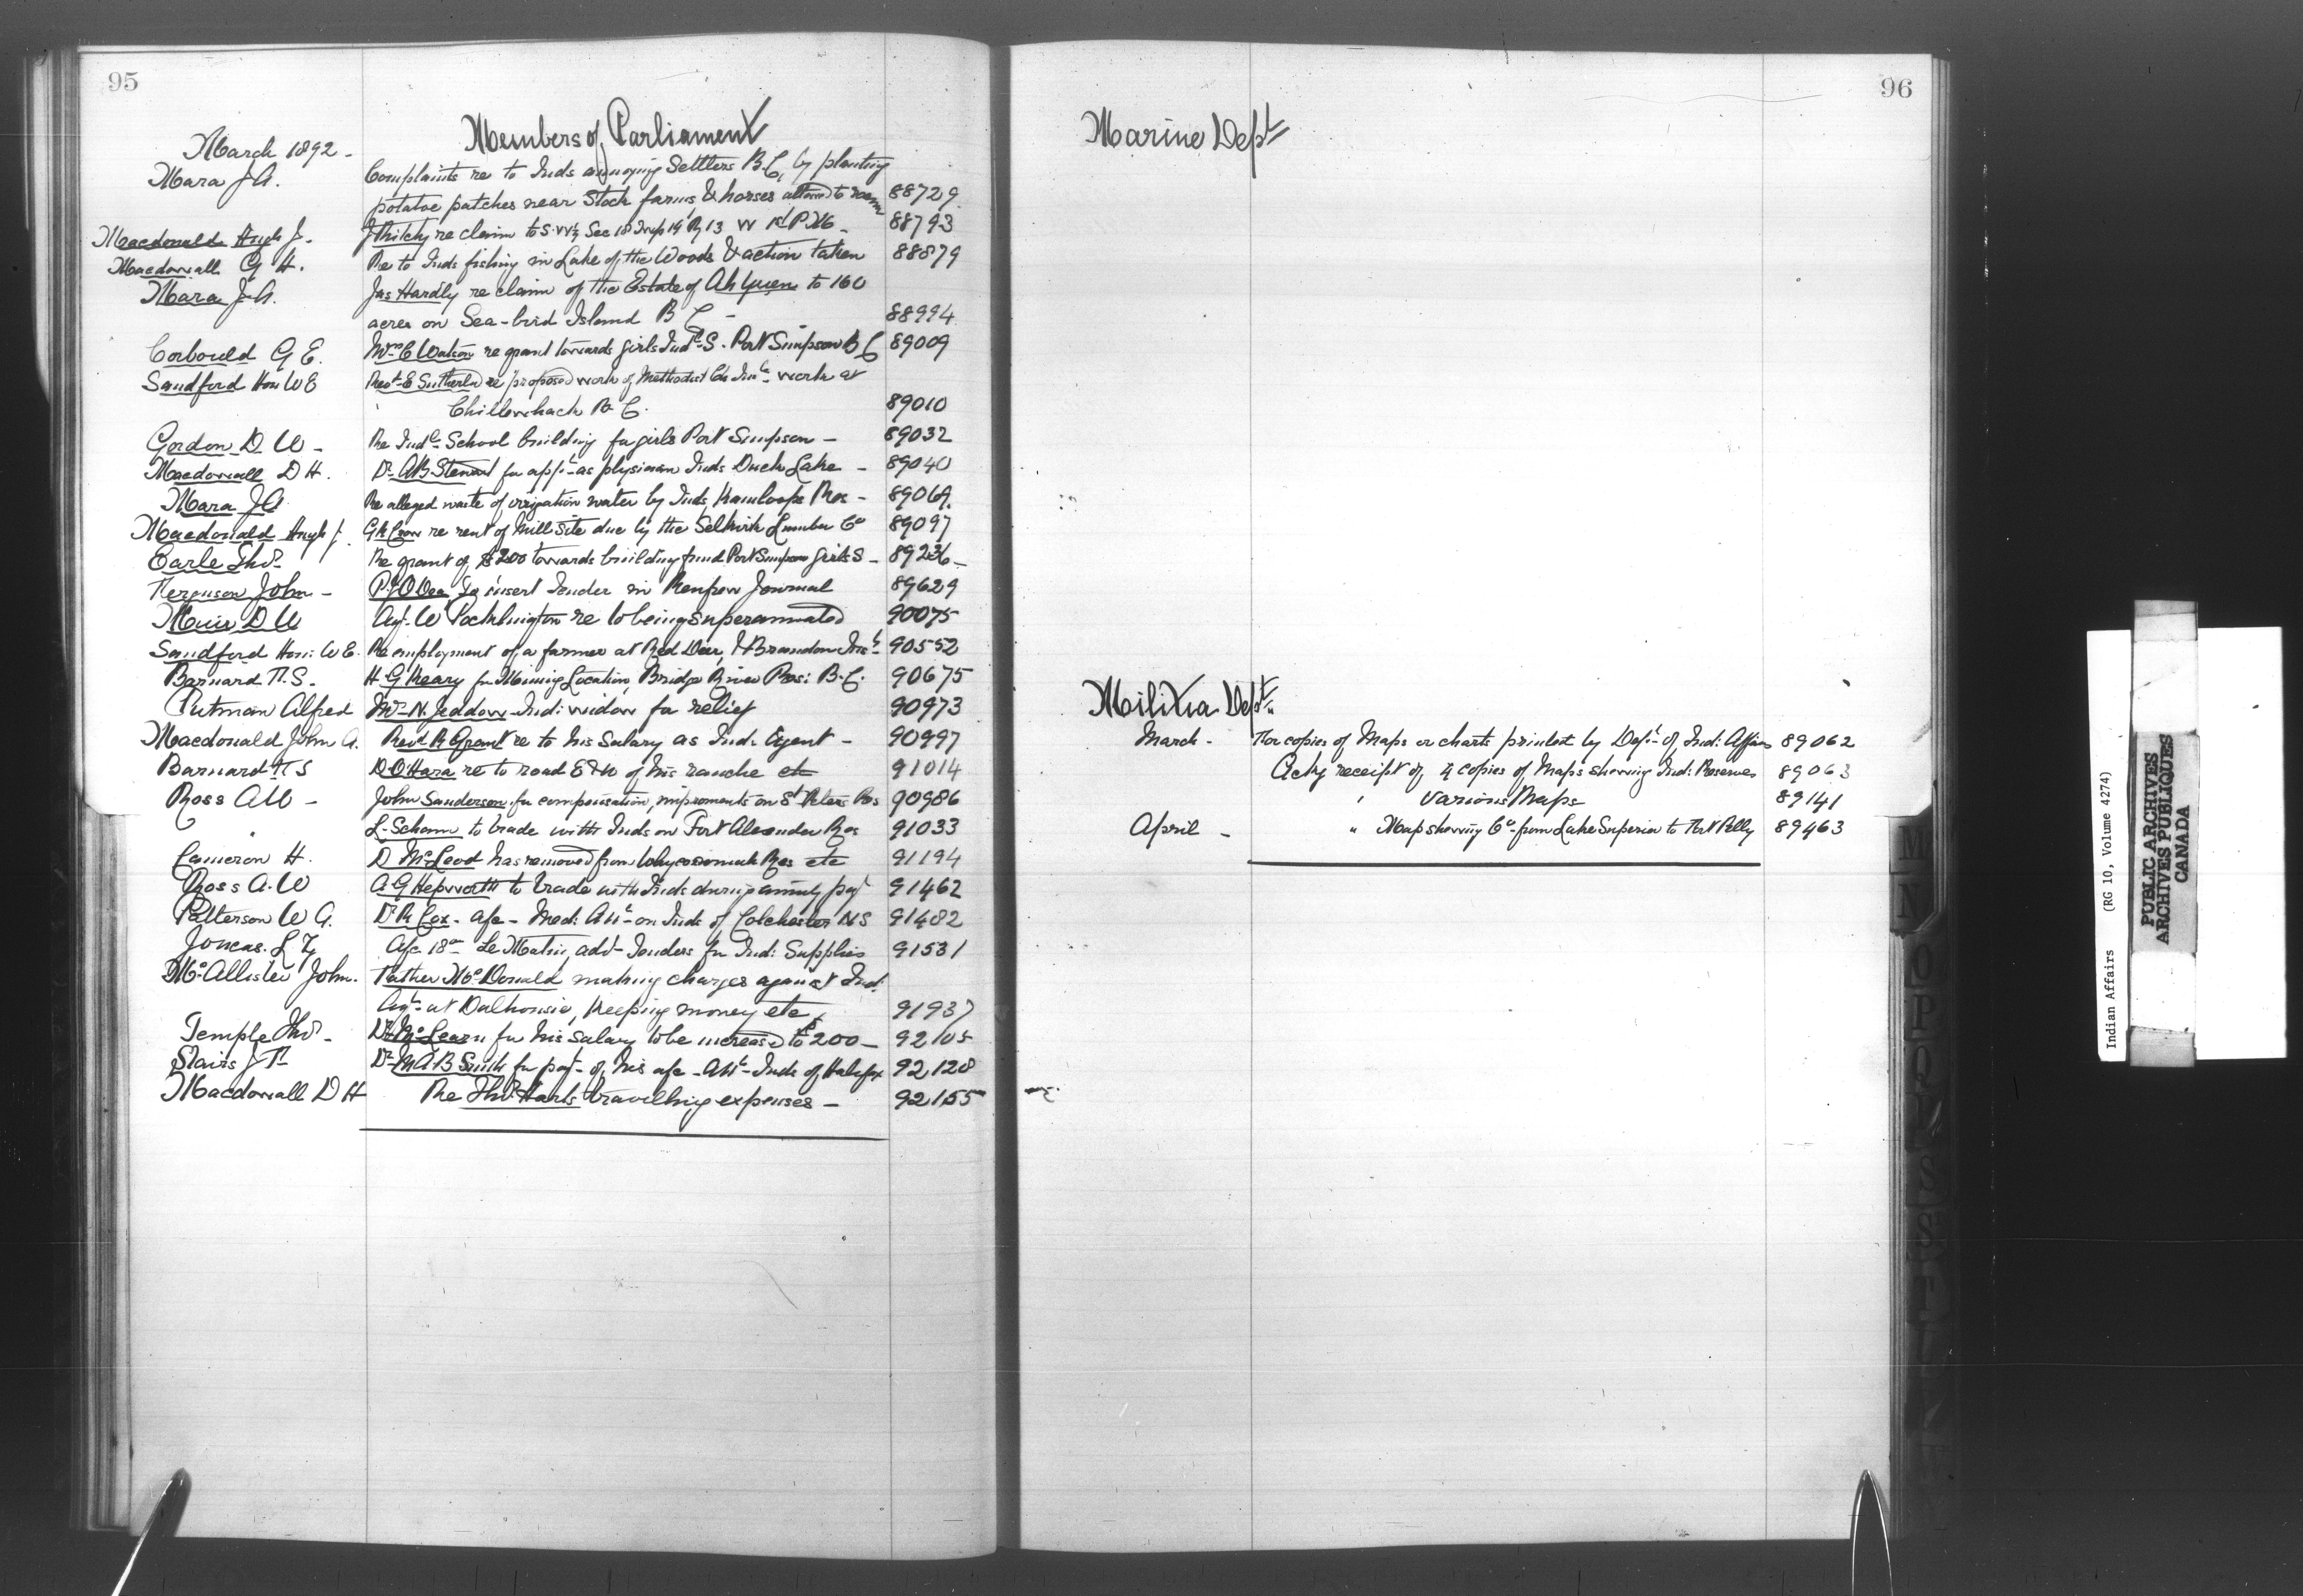 95
Members of Parliament
March 1892 -
Mara J A. Complaints re to Inds annoying Settlers B C, by planting
potatoe patches near Stock farms & horses allowed to roam 88729
Macdonald Hugh J. re claim to S.W¼ Sec 18 Twp 14 Rg 13 W 1st P.M. - 88793
Macdowall G H. Re to Inds fishing in Lake of the Woods & action taken 88879
Mara J A. Jas Hardly re claim of the Estate of Ah Yuen to 160
acres on Sea-bird Island B C - 88994
Corbould G E. Mrs C Watson re grant towards girls Indl S. Port Simpson B C 89009
Sandford Hon W E Revd E Sutherld re proposed work of Methodist Ch work at
Chillewhack B. C. 89010
Gordon D W - Re Indl School building for girls Port Simpson - 89032
Macdowall D H. Dr A B Stewart for appt as physician Inds Duck Lake - 89040
Mara J A Re alleged waste of irrigation water by Inds, Kamloops Res - 89069.
Macdonald Hugh J. G R Crow re rent of Mill Site due by the Selkirk Lumber Co 89097
Earle Thos Re grant of $200 towards building fund Port Simpson Girls S - 89236 -
Ferguson John - P. J O Dea To insert Tender in Renfrew Journal 89629
Muir D W Agt W Pocklington re to being superannuated 90075
Sandford Hon: W E. Re employment of a farmer at Red Deer, & Brandon Inst 90552
Barnard F. S. H G Keary for Mining Location, Bridge River Res: B. C. 90675
Putman Alfred Mrs N. Jeddow Ind: widow for relief 90973
Macdonald John A. Revd R Grant re to his Salary as Ind: Agent - 90997
Barnard F S D O'Hara re to road E & W of his ranche etc 91014
Ross A W - John Sanderson for compensation, improments on St Peters Res 90986
L. Schann to trade with Inds on Fort Alexander Res 91033
Cameron H. D McLeod has removed from Whycocomah Res etc 91194
Ross A. W A G Hepworth to trade with Inds during annuity payt 91462
Patterson W A. Dr R Cox - a/c - Med: Attc on Inds of Colchester N S 91482
Joncas. L Z A/c 18 Le Matin, advt Tenders for Ind: Supplies 91531
McAllister John. Father McDonald making charges against Ind:
Agt at Dalhousie, Keeping money etc, 91937
Temple Thos - Dr McLearn for his Salary to be increased to $200 - 92105
Stairs J F Dr M A B Smith for payt of his a/c - Attc Inds of Halifax 92128
Macdowall D H Re Thos Harts travelling expenses - 92155
96
Marine Dept
Militia Dept
March - For copies of Maps or charts printed by Dept of Ind: Affairs 89062
Ackg receipt of 4 copies of Maps showing Ind: Reserves 89063
" Various Maps 89141
April - " Map showing Co from Lake Superior to Fort Pelly 89463
M
N
O
P
Q
R
S
Indian Affairs (RG 10, Volume 4274)
PUBLIC ARCHIVES
ARCHIVES PUBLIQUES
CANADA